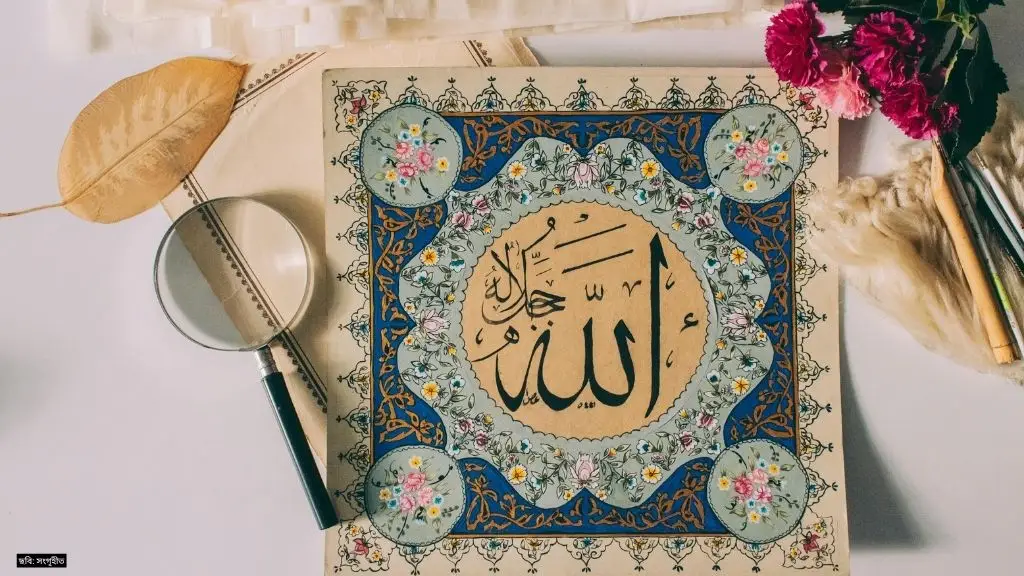 الله
جل جلاله
ছবি: সংগৃহীত